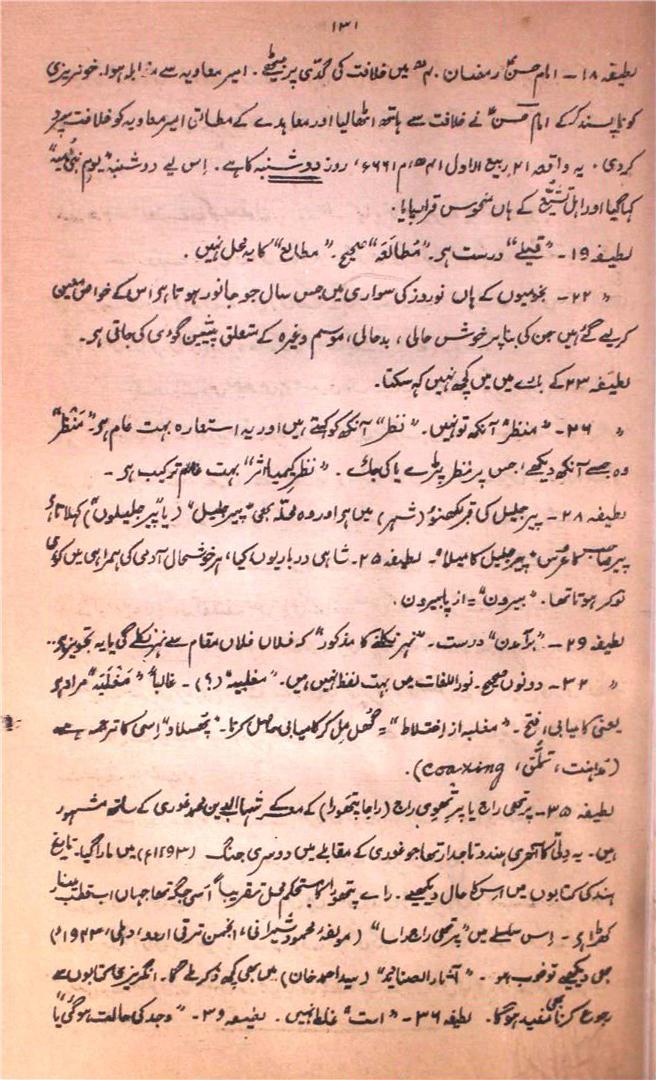 ۱۳۱
لطیفہ ۱۸ - امام حسنؑ رمضان ۴۰ھ میں خلافت کی گدّی پر بیٹھے۔ امیر معاویہ سے مقابلہ ہوا۔ خونریزی
کو ناپسند کرکے امام حسنؑ نے خلافت سے ہاتھ اٹھا لیا اور معاہدے کے مطابق امیر معاویہ کو خلافت سپرد
کردی۔ یہ واقعہ ۲۱ ربیع الاول ۴۱ھ، ۶۶۱ء، روز دوشنبہ کا ہے۔ اِس لیے دوشنبہ "یومِ بنی اُمیہ"
کہا گیا اور اہلِ تشیّع کے ہاں منحوس قرار پایا۔
لطیفہ ۱۹ - "قبیلے" درست ہے۔ "مُطالَعَہ" صحیح۔ "مطالع" کا یہ محل نہیں۔
" ۲۲ - نجومیوں کے ہاں نوروز کی سواری میں جس سال جو جانور ہوتا ہے اس کے خواص معین
کرلیے گئے ہیں جن کی بنا پر خوش حالی، بدحالی، موسم وغیرہ کے متعلق پیشین گوئی کی جاتی ہے۔
لطیفہ ۲۳ کے بارے میں میں کچھ نہیں کہہ سکتا۔
" ۲۶ - "منظر" آنکھ تو نہیں۔ "نظر" آنکھ کو کہتے ہیں اور یہ استعارہ بہت عام ہے۔ "مَنْظَر"
وہ جسے آنکھ دیکھے، جس پر نظر پڑے یا کی جائے۔ "نظرِ کیمیا اثر" بہت عام ترکیب ہے۔
لطیفہ ۲۸ - پیر جلیل کی قبر لکھنؤ (شہر) میں ہے اور وہ محلّہ بھی "پیر جلیل" (یا "پیر جلیلوں") کہلاتا ہے
پیر صاحب کا عُرس "پیر جلیل کا میلا"۔ لطیفہ ۲۵ - شاہی درباریوں کیا، ہر خوشحال آدمی کی ہمراہی میں کوئی
نوکر ہوتا تھا۔ "بیرون" = از پا بیرون۔
لطیفہ ۲۹ - "برآمدن" درست۔ "نہر نکلنے کا مذکور" کہ فلاں فلاں مقام سے نہر نکلے گی یا یہ تجویز ہے..
" ۳۲ - دونوں صحیح۔ نوراللغات میں بہت لفظ نہیں ہیں۔ "مغلبیہ" (؟) - غالباً "مَغْلَبَہ" مراد ہے
یعنی کامیابی، فتح۔ "مغلبہ از اختلاط" = گُھل مِل کر کامیابی حاصل کرنا۔ "پُھسلاو" اِسی کا ترجمہ ہے
(مداہنت، تملّق، coaxing)۔
لطیفہ ۳۵ - پرتھی راج یا پرتھوی راج (راجا پتھورا) کے معرکے شہاب الدین محمد غوری کے ساتھ مشہور
ہیں۔ یہ دلّی کا آخری ہندو تاجدار تھا جو غوری کے مقابلے میں دوسری جنگ (۱۱۹۳ء) میں مارا گیا۔ تاریخِ
ہند کی کتابوں میں اِس کا حال دیکھیے۔ راے پتھورا کا مستحکم محل تقریباً اُسی جگہ تھا جہاں اب قطب مینار
کھڑا ہے۔ اِس سلسلے میں "پرتھی راج راسا" (مولفہ محمود شیرانی، انجمن ترقی اردو، دہلی، ۱۹۴۳ء)
بھی دیکھیے تو خوب ہو۔ "آثار الصنادید" (سید احمد خان) میں بھی کچھ ذکر ملے گا۔ انگریزی کتابوں سے
رجوع کرنا بھی مفید ہوگا۔ لطیفہ ۳۶ - "است" غلط نہیں۔ لطیفہ ۳۹ - "وجد کی حالت ہوگئی" یا